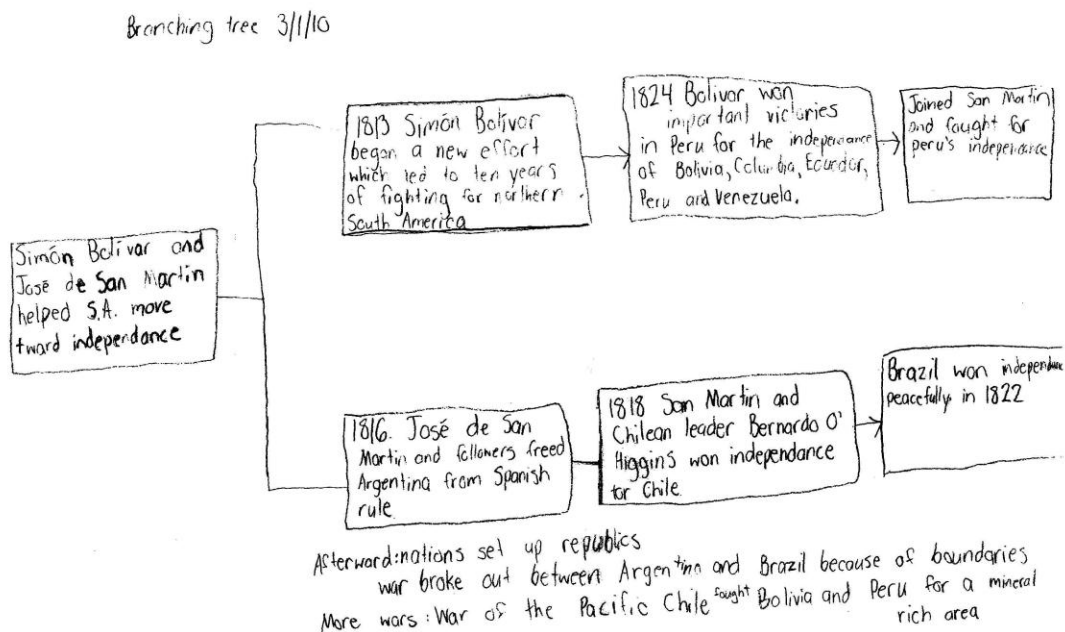 Branching tree 3/1/10
Simón Bolívar and
José de San Martin
helped S.A. move
tward independance
1813 Simón Bolívar
began a new effort
which led to ten years
of fighting for northern
South America
1824 Bolivar won
important victories
in Peru for the independance
of Bolivia, Columbia, Ecuador,
Peru and Venezuela.
Joined San Martin
and fought for
peru's independance
1816. José de San
Martin and followers freed
Argentina from Spanish
rule
1818 San Martin and
Chilean leader Bernardo O'
Higgins won independance
for Chile.
Brazil won independance
peacefully in 1822
Afterward: nations set up republics
war broke out between Argentina and Brazil because of boundaries
More wars: War of the Pacific Chile fought Bolivia and Peru for a mineral
rich area